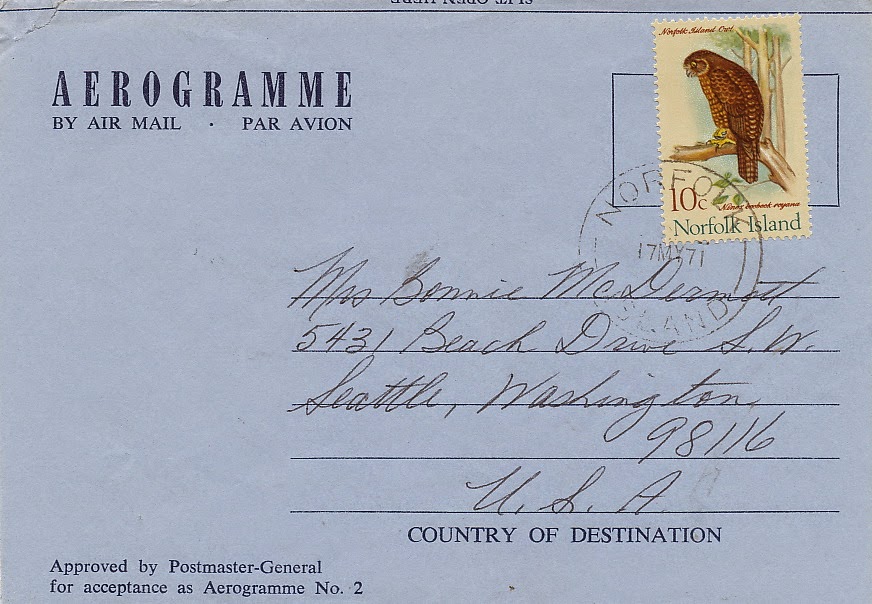 SLIT OPEN HERE
AEROGRAMME
BY AIR MAIL · PAR AVION
Norfolk Island Owl
10c
Ninox boobook royana
Norfolk Island
NORFOLK ISLAND
17MY71
Mrs Bonnie McDermott
5431 Beach Drive S.W.
Seattle, Washington
98116
U.S.A.
COUNTRY OF DESTINATION
Approved by Postmaster-General
for acceptance as Aerogramme No. 2